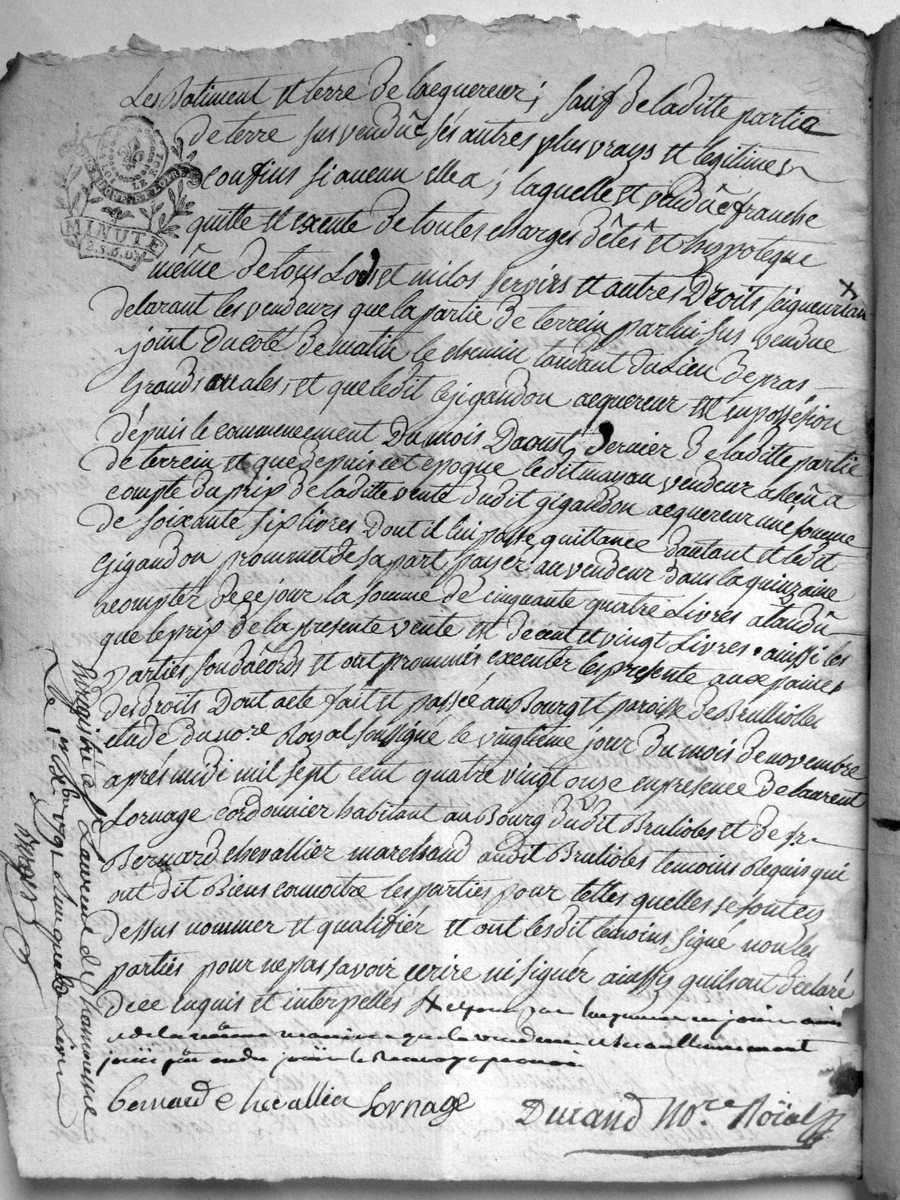 Les Batiment et terre de lacquereur ; sauf de laditte partie
de terre sus venduë ses autres plus vrays et legitimes
confins si aucun elle a ; laquelle et venduë franche
quitte et exente de toutes charges dêtês et hypoteque
même de tous Lods et milos servis et autres Droits seigneuriau
LE ROI
MINUTE
2.S.8.D
delarant les vendeurs que la partie de terrein par lui sus vendue
joint du coté de matin le chemin tandant du Lieu de pras
Grands et que ledit Gigandon acquereur et en possésion
dépuis le commencement du mois Daoust dernier de laditte partie
de terrein et que depuis cet epoque ledit mayou vendeur a Reçû a
compte du prix de laditte vente dudit gigandon acquereur une somme
de soixante six livres dont il lui passe quittance dautant et ledit
Gigandon prommet de sa part payér au vendeur dans la quinzaine
a compter de ce jour la somme de cinquante quatre Livres atandû
que le prix de la presente vente et de cent et vingt Livres . ainssi les
parties son dacords et ont prommis executer les presente aux paines
des droits Dont acte fait et passée au Bourg et paroisse de Brullioles
etude du nore Royal soussigné le vingtième jour du mois de novembre
aprés midi mil sept cent quatre vingt onze en presence de laurent
Lornage cordonnier habitant au Bourg dudit Brulioles et de sr
Bernard chevallier marchand audit Brulioles temoins Requis qui
ont dit Biens connoitre les parties pour telles quelles se sont cy
dessus nommer et qualifiér et ont lesdit temoins signé non les
parties pour ne pas savoir ecrire ni signer ainssis quils ont déclaré
de ce enquis et interpellés
et de la même maniere que le vendeur
bernard chevallier Lornage Durand Nore Roïal
Enregistré a St Laurent de Chamousset
Le 1791